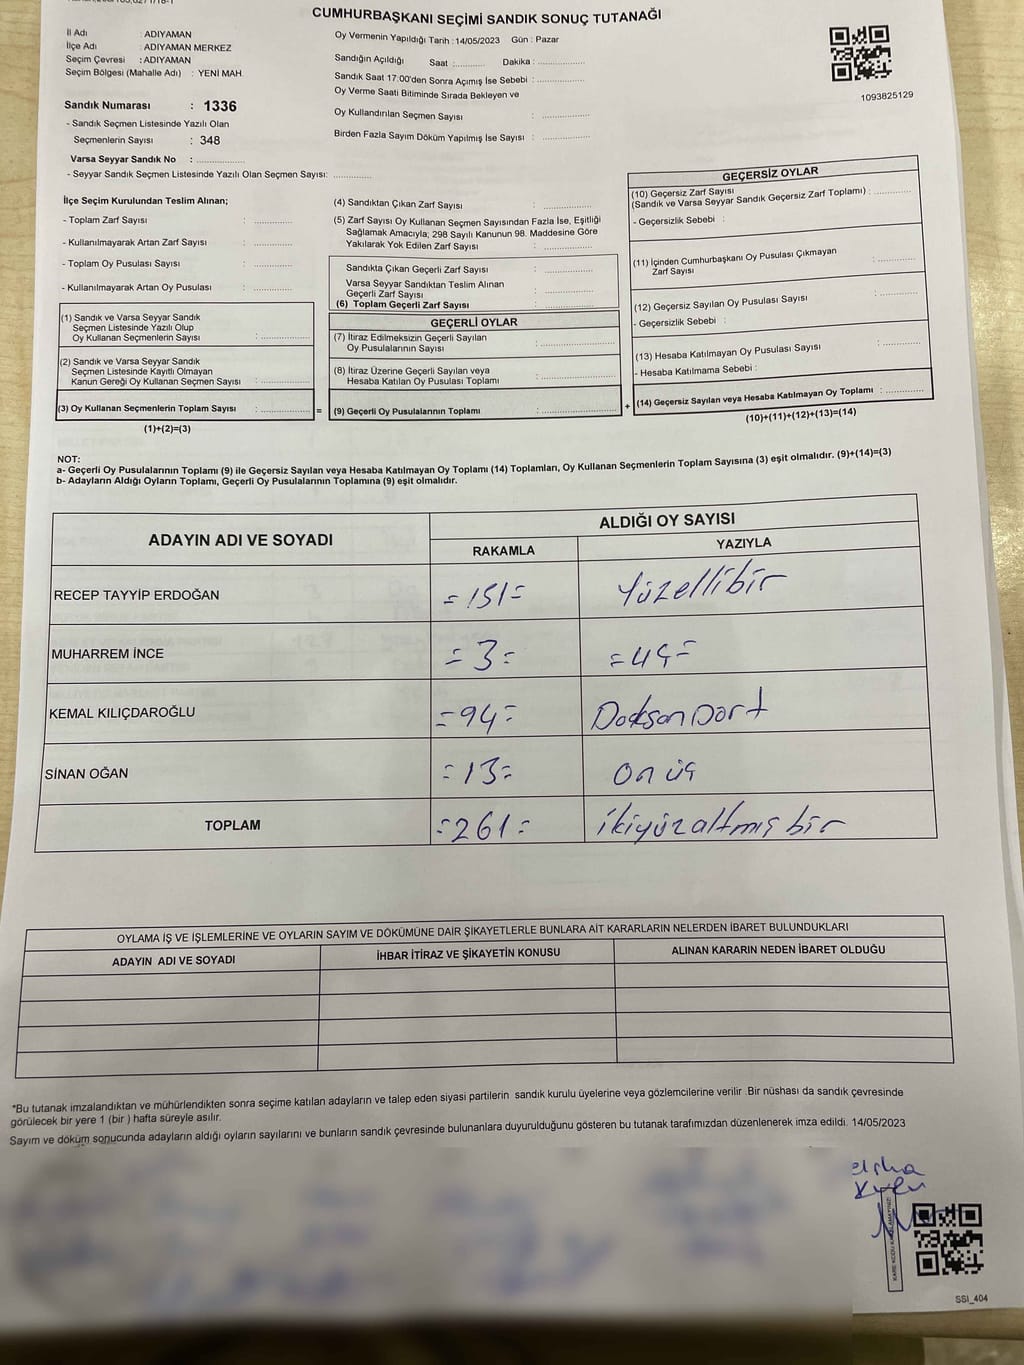 CUMHURBAŞKANI SEÇİMİ SANDIK SONUÇ TUTANAĞI
İl Adı : ADIYAMAN
İlçe Adı : ADIYAMAN MERKEZ
Seçim Çevresi : ADIYAMAN
Seçim Bölgesi (Mahalle Adı) : YENİ MAH.
Sandık Numarası : 1336
- Sandık Seçmen Listesinde Yazılı Olan
Seçmenlerin Sayısı : 348
Varsa Seyyar Sandık No : ..............
- Seyyar Sandık Seçmen Listesinde Yazılı Olan Seçmen Sayısı: ............
Oy Vermenin Yapıldığı Tarih : 14/05/2023 Gün : Pazar
Sandığın Açıldığı Saat :.......... Dakika : ..............
Sandık Saat 17:00'den Sonra Açımış İse Sebebi : ..............
Oy Verme Saati Bitiminde Sırada Bekleyen ve
Oy Kullandırılan Seçmen Sayısı : ..............
Birden Fazla Sayım Döküm Yapılmış İse Sayısı : ..............
1093825129
İlçe Seçim Kurulundan Teslim Alınan;
- Toplam Zarf Sayısı : ............
- Kullanılmayarak Artan Zarf Sayısı : ............
- Toplam Oy Pusulası Sayısı : ............
- Kullanılmayarak Artan Oy Pusulası : ............
(1) Sandık ve Varsa Seyyar Sandık
Seçmen Listesinde Yazılı Olup
Oy Kullanan Seçmenlerin Sayısı : ..............
(2) Sandık ve Varsa Seyyar Sandık
Seçmen Listesinde Kayıtlı Olmayan
Kanun Gereği Oy Kullanan Seçmen Sayısı : ..............
(3) Oy Kullanan Seçmenlerin Toplam Sayısı : .............. =
(1)+(2)=(3)
(4) Sandıktan Çıkan Zarf Sayısı : ..............
(5) Zarf Sayısı Oy Kullanan Seçmen Sayısından Fazla İse, Eşitliği
Sağlamak Amacıyla; 298 Sayılı Kanunun 98. Maddesine Göre
Yakılarak Yok Edilen Zarf Sayısı : ..............
Sandıkta Çıkan Geçerli Zarf Sayısı : ..............
Varsa Seyyar Sandıktan Teslim Alınan
Geçerli Zarf Sayısı : ..............
(6) Toplam Geçerli Zarf Sayısı : ..............
GEÇERLİ OYLAR
(7) İtiraz Edilmeksizin Geçerli Sayılan
Oy Pusulalarının Sayısı : ..............
(8) İtiraz Üzerine Geçerli Sayılan veya
Hesaba Katılan Oy Pusulası Toplamı : ..............
(9) Geçerli Oy Pusulalarının Toplamı : .............. +
GEÇERSİZ OYLAR
(10) Geçersiz Zarf Sayısı
(Sandık ve Varsa Seyyar Sandık Geçersiz Zarf Toplamı) : ............
- Geçersizlik Sebebi :
(11) İçinden Cumhurbaşkanı Oy Pusulası Çıkmayan
Zarf Sayısı : ............
(12) Geçersiz Sayılan Oy Pusulası Sayısı : ............
- Geçersizlik Sebebi :
(13) Hesaba Katılmayan Oy Pusulası Sayısı : ............
- Hesaba Katılmama Sebebi :
(14) Geçersiz Sayılan veya Hesaba Katılmayan Oy Toplamı : ............
(10)+(11)+(12)+(13)=(14)
NOT:
a- Geçerli Oy Pusulalarının Toplamı (9) ile Geçersiz Sayılan veya Hesaba Katılmayan Oy Toplamı (14) Toplamları, Oy Kullanan Seçmenlerin Toplam Sayısına (3) eşit olmalıdır. (9)+(14)=(3)
b- Adayların Aldığı Oyların Toplamı, Geçerli Oy Pusulalarının Toplamına (9) eşit olmalıdır.
ADAYIN ADI VE SOYADI ALDIĞI OY SAYISI
RAKAMLA YAZIYLA
RECEP TAYYİP ERDOĞAN =151= Yüzellibir
MUHARREM İNCE =3= =üç=
KEMAL KILIÇDAROĞLU =94= Doksan Dört
SİNAN OĞAN =13= on üç
TOPLAM =261= ikiyüzaltmış bir
OYLAMA İŞ VE İŞLEMLERİNE VE OYLARIN SAYIM VE DÖKÜMÜNE DAİR ŞİKAYETLERLE BUNLARA AİT KARARLARIN NELERDEN İBARET BULUNDUKLARI
ADAYIN ADI VE SOYADI İHBAR İTİRAZ VE ŞİKAYETİN KONUSU ALINAN KARARIN NEDEN İBARET OLDUĞU
*Bu tutanak imzalandıktan ve mühürlendikten sonra seçime katılan adayların ve talep eden siyasi partilerin sandık kurulu üyelerine veya gözlemcilerine verilir .Bir nüshası da sandık çevresinde
görülecek bir yere 1 (bir ) hafta süreyle asılır.
Sayım ve döküm sonucunda adayların aldığı oyların sayılarını ve bunların sandık çevresinde bulunanlara duyurulduğunu gösteren bu tutanak tarafımızdan düzenlenerek imza edildi. 14/05/2023
SSI_404